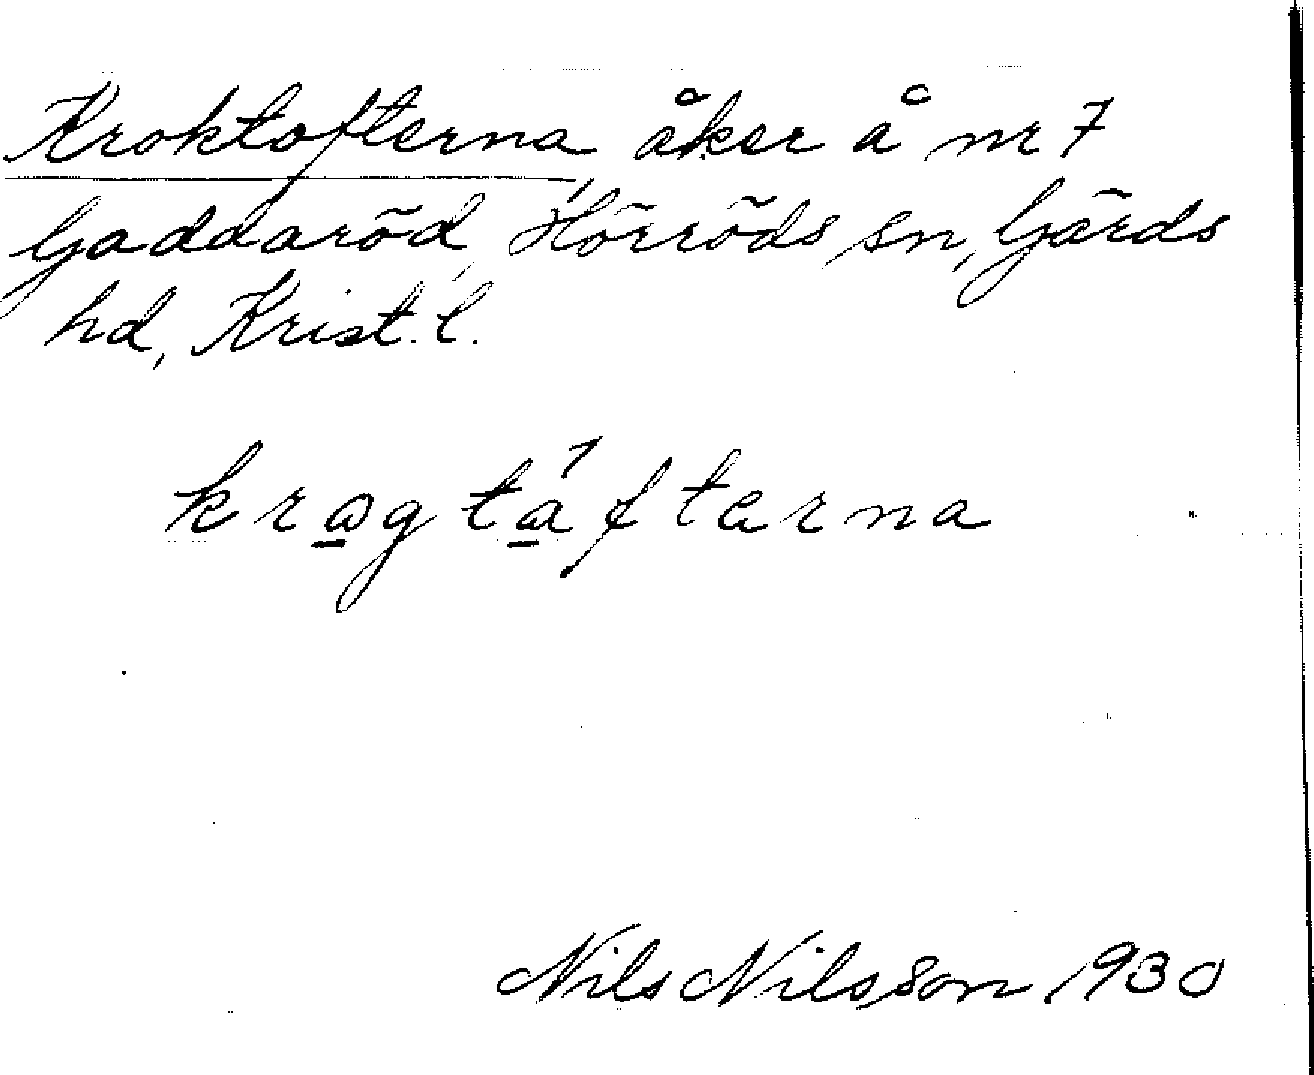 Kroktofterna, åker å nr 7
Gaddaröd, Hörröds sn, Gärds
hd, Krist. l.
krogtáfterna
Nils Nilsson 1930